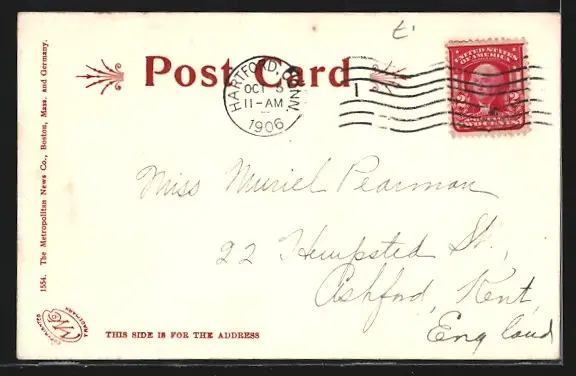 Post Card
HARTFORD, CONN.
OCT 5
11-AM
1906
1
UNITED STATES
OF AMERICA
2 2
TWO CENTS
Miss Muriel Pearman
22 Hempsted St,
Ashford, Kent,
England
1554. The Metropolitan News Co., Boston, Mass. and Germany.
TRADEMARK
THIS SIDE IS FOR THE ADDRESS